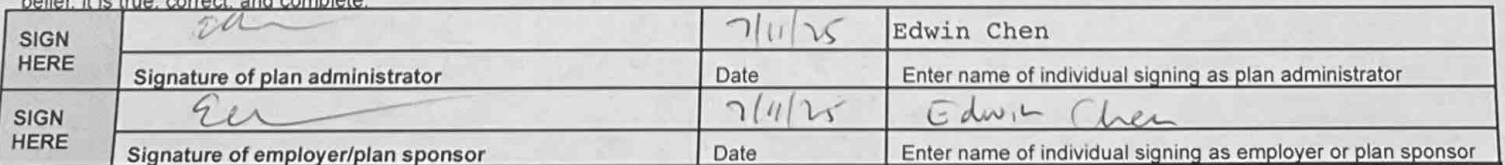 belief, it is true, correct, and complete.
SIGN HERE 7/11/25 Edwin Chen
Signature of plan administrator Date Enter name of individual signing as plan administrator
SIGN HERE 7/11/25 Edwin Chen
Signature of employer/plan sponsor Date Enter name of individual signing as employer or plan sponsor